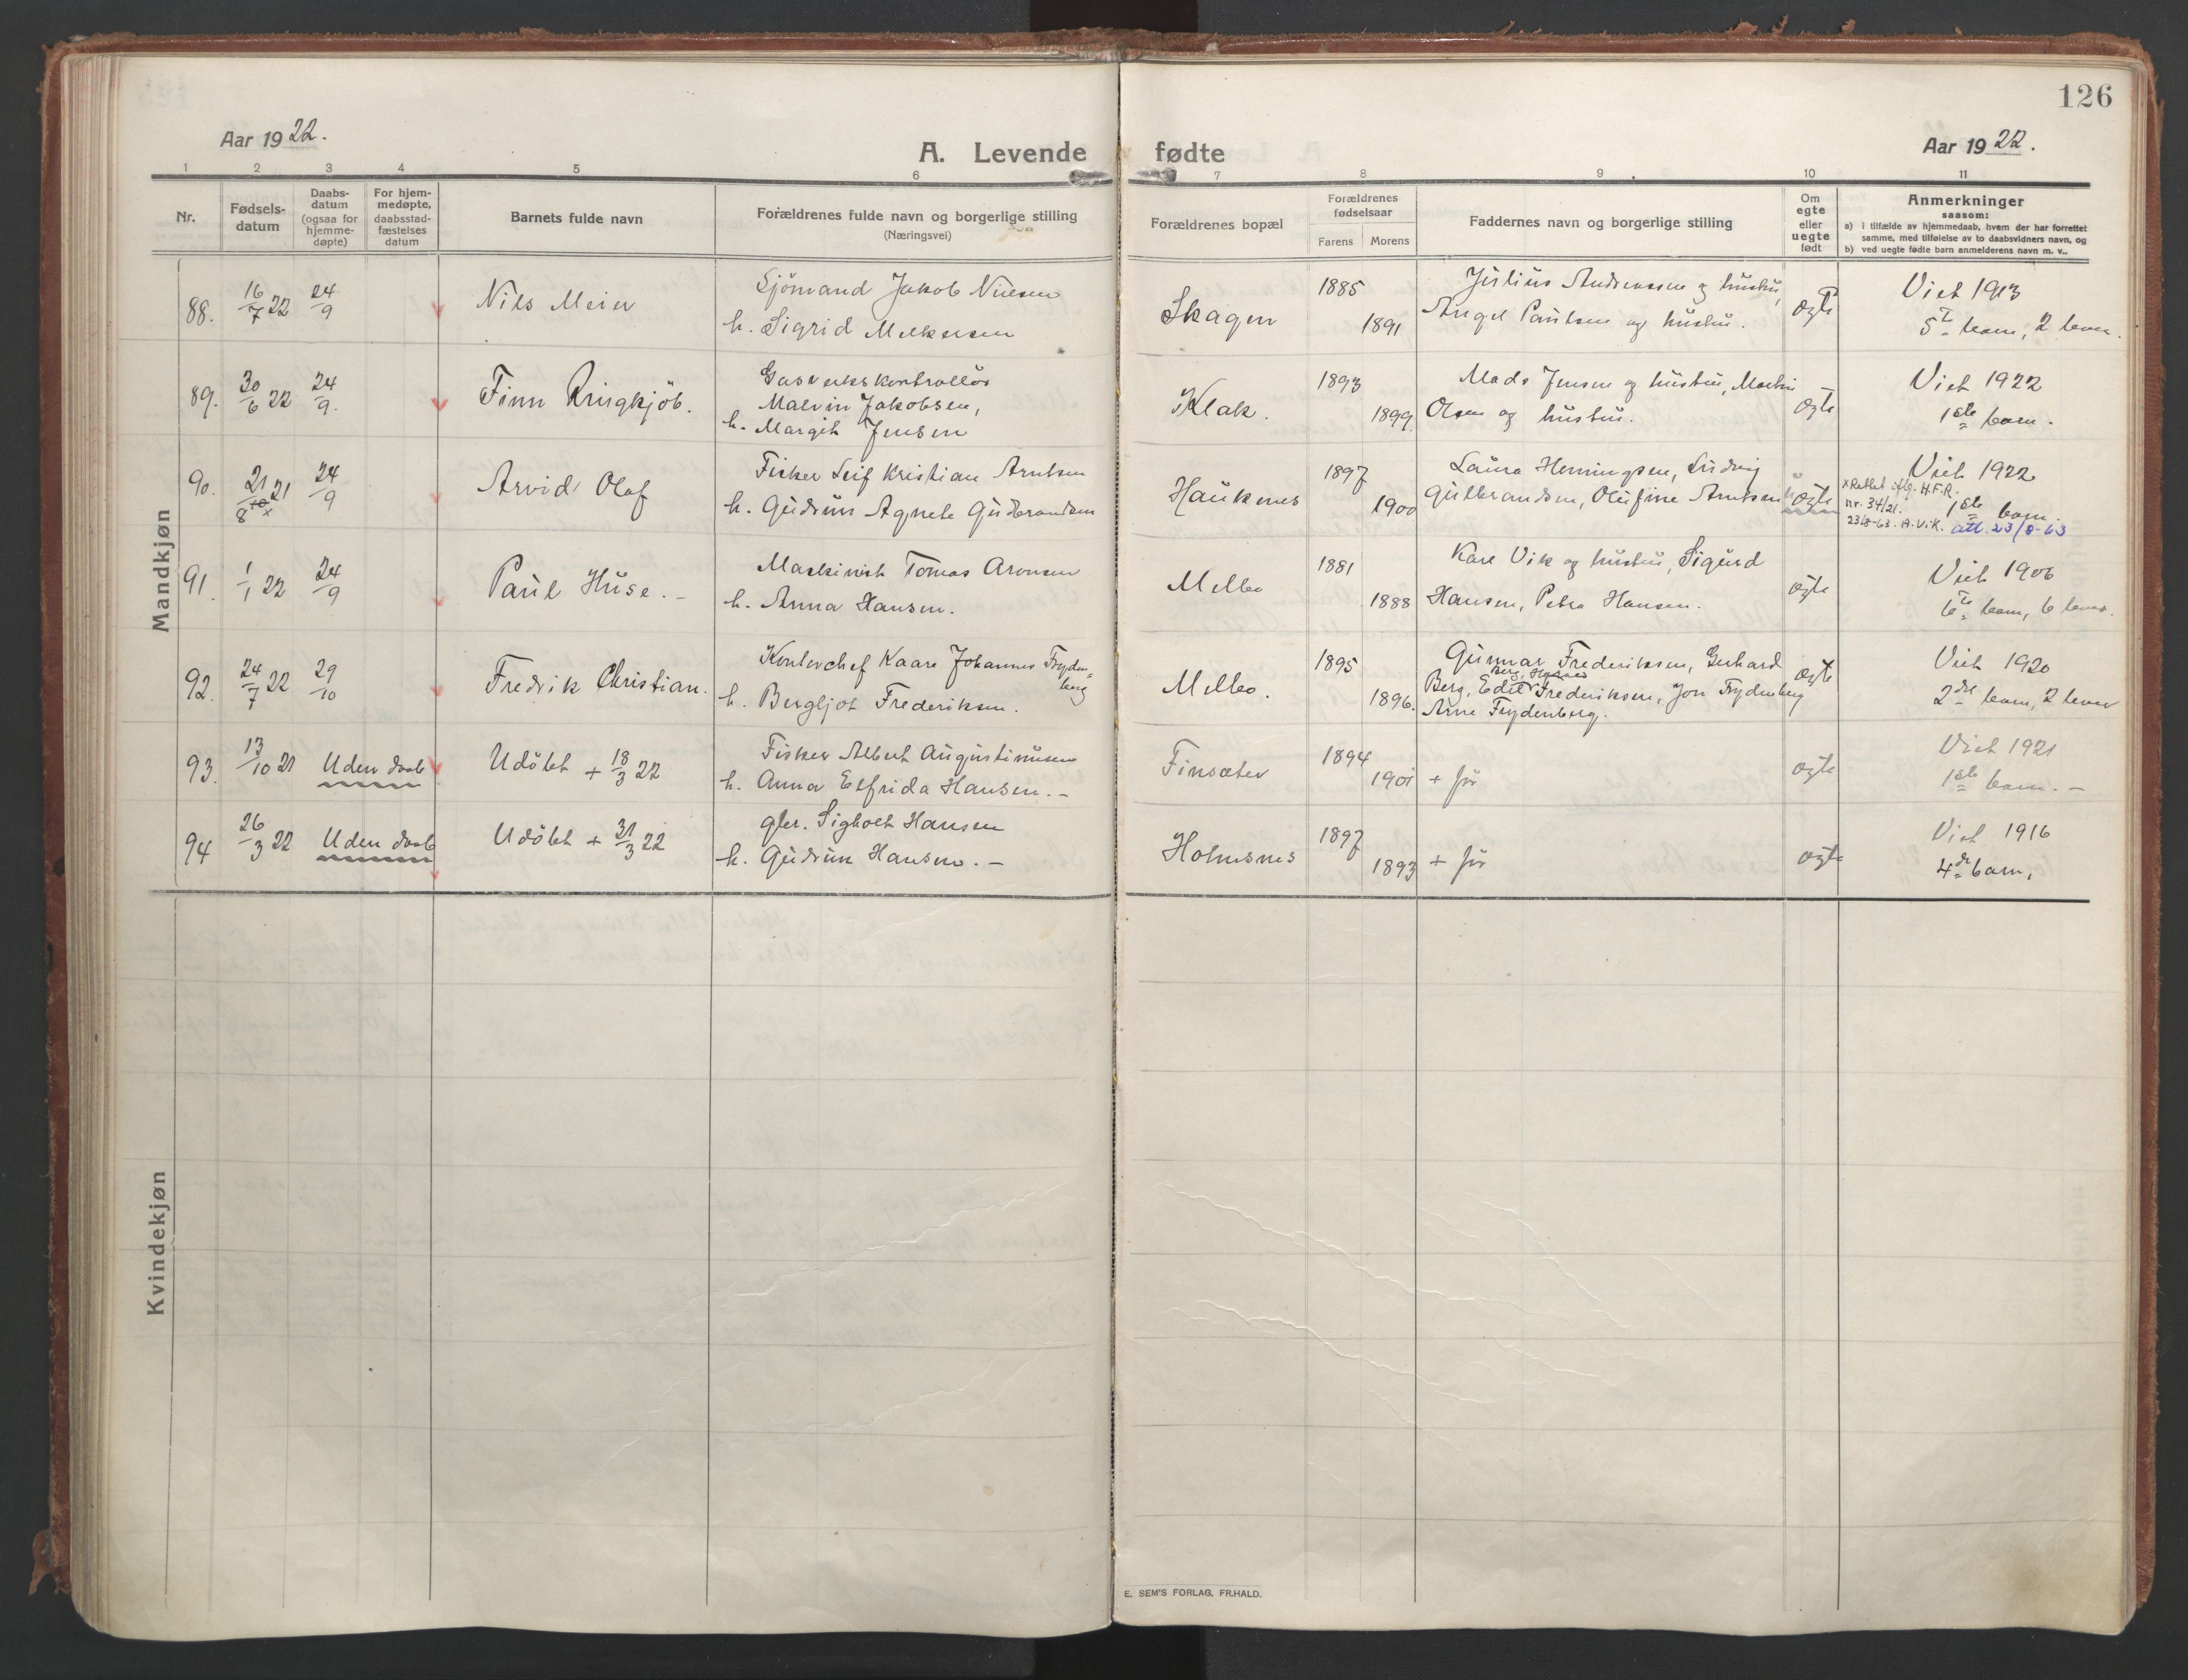 126
Aar 1922.
A. Levende fødte
Aar 1922.
1 2 3 4 5 6 7 8 9 10 11
Nr.
Fødsels-
datum
Daabs-
datum
(ogsaa for
hjemme-
døpte)
For hjem-
medøpte,
daabsstad-
fæstelses
datum
Barnets fulde navn
Forældrenes fulde navn og borgerlige stilling
(Næringsvei)
Forældrenes bopæl
Forældrenes
fødselsaar
Farens Morens
Faddernes navn og borgerlige stilling
Om
egte
eller
uegte
født
Anmerkninger
saasom:
a) i tilfælde av hjemmedaab, hvem der har forrettet
samme, med tilføielse av to daabsvidners navn, og
b) ved uegte fødte barn anmelderens navn m. v..
Mandkjøn
88. 16/7 22 24/9 Nils Meier
Sjömand Jakob Nielsen
h. Sigrid Melkersen
Skagen 1885 1891
Julius Andreassen og hustru,
Angel Paulsen og hustru.
egte
Viet 1913
5te barn, 2 lever.
89. 30/6 22 24/9. Finn Ringkjöb.
Gasverkskontrollör
Malvin Jakobsen,
h. Margit Jensen
Klak. 1893 1899.
Mads Jensen og hustru, Martin
Olsen og hustru.
egte
Viet 1922
1ste barn.
90. 21/10 21 8 x 24/9 Arvid Olaf
Fisker Leif Kristian Arntsen
h. Gudrun Agnete Gulbrandsen
Hauknes 1897 1900
Laura Henningsen, Ludvig
Gulbrandsen, Olufine Arntsen
egte
Viet 1922
1ste barn.
x Rettet iflg. H.F.R.
nr. 34/21.
23/8-63. A. Vik. att. 23/8-63
91. 1/1 22 24/9 Paul Huse. -
Maskinist Tomas Aronsen
h. Anna Hansen.
Melbo 1881 1888
Kare Vik og hustru, Sigurd
Hansen, Petra Hansen.
egte
Viet 1906
6te barn, 6 lever.
92. 24/7 22 29/10 Fredrik Christian.
Kontorchef Kaare Johannes Fryden-
berg
h. Bergljot Frederiksen.
Melbo. 1895 1896.
Gunnar Frederiksen, Gerhard
Berg, Edil Frederiksen, Jon Frydenberg
Arne Frydenberg.
egte
Viet 1920
2det barn, 2 lever
93. 13/10 21 Uden daab Udöbt + 18/3 22
Fisker Albert Augustinusen
h. Anna Elfrida Hansen. -
Finsæter 1894 1901 + för
egte
Viet 1921
1ste barn. -
94 26/3 22 Uden daab Udöbt + 31/3 22
gbr. Sigholt Hansen
h. Gudrun Hansen. -
Holmsnes 1897 1893 + för
egte
Viet 1916
4de barn,
Kvindekjøn
E. SEM'S FORLAG, FR.HALD.